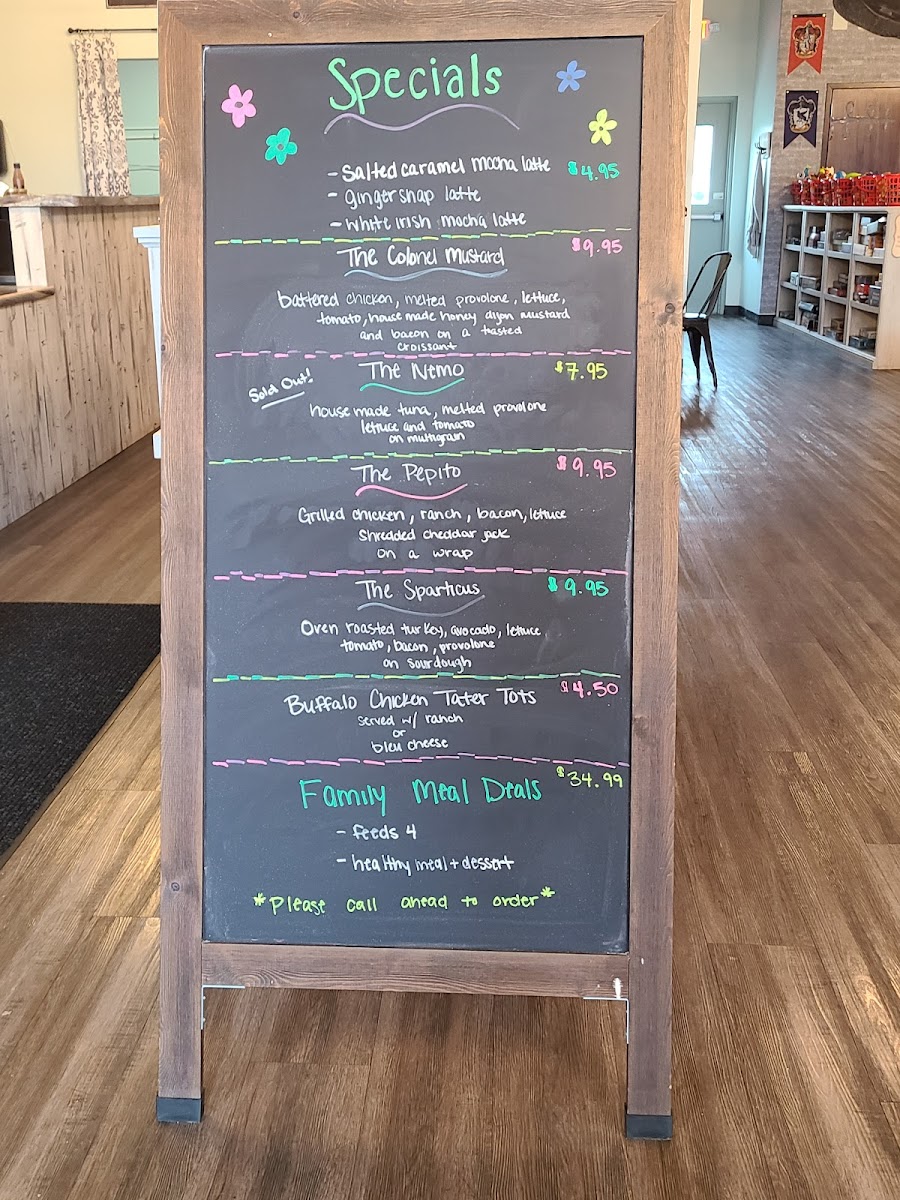 Specials
- Salted caramel mocha latte $4.95
- gingersnap latte
- white irish mocha latte
The Colonel Mustard $9.95
battered chicken, melted provolone, lettuce,
tomato, house made honey dijon mustard
and bacon on a toasted
croissant
Sold Out! The Nemo $7.95
house made tuna, melted provolone
lettuce and tomato
on multigrain
The Pepito $9.95
Grilled chicken, ranch, bacon, lettuce
Shredded cheddar jack
on a wrap
The Sparticus $9.95
Oven roasted turkey, avocado, lettuce
tomato, bacon, provolone
on sourdough
Buffalo Chicken Tater Tots $4.50
served w/ ranch
or
bleu cheese
Family Meal Deals $34.99
- feeds 4
- healthy meal + dessert
*Please call ahead to order*